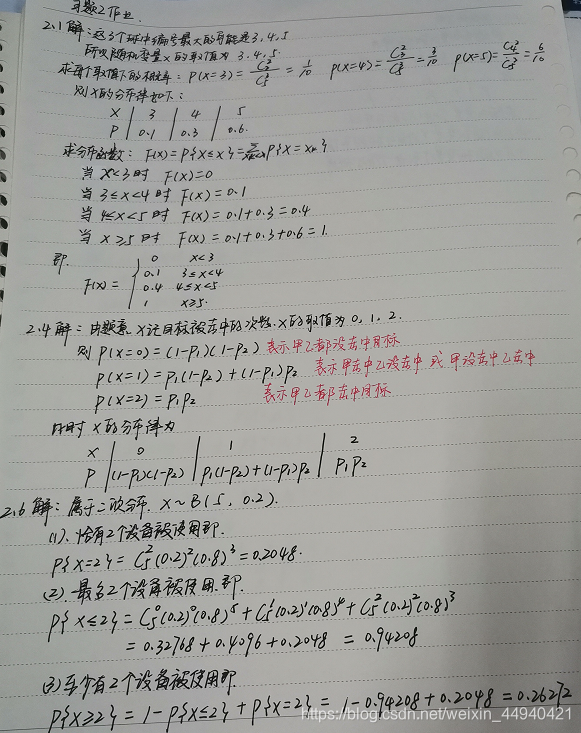 习题2作业.
2.1 解:这3个球中编号最大的可能是3,4,5
所以随机变量X的取值为 3,4,5.
求每个取值下的概率: P(X=3) = C₂²/C₅³ = 1/10 P(X=4) = C₃²/C₅³ = 3/10 P(X=5) = C₄²/C₅³ = 6/10
则X的分布律如下:
X | 3 | 4 | 5
P | 0.1 | 0.3 | 0.6.
求分布函数: F(x) = P{X≤x} = P{X=xₖ}
当 x<3 时 F(x)=0
当 3≤x<4 时 F(x)=0.1
当 4≤x<5 时 F(x)=0.1+0.3=0.4
当 x≥5 时 F(x)=0.1+0.3+0.6=1.
即.
0 x<3
0.1 3≤x<4
F(x) = {
0.4 4≤x<5
1 x≥5.
2.4 解: 由题意, X记目标被击中的次数. X的取值为 0, 1, 2.
则 P(X=0) = (1-p₁)(1-p₂) 表示甲乙都没击中目标
P(X=1) = p₁(1-p₂) + (1-p₁)p₂ 表示甲击中乙没击中 或 甲没击中乙击中
P(X=2) = p₁p₂ 表示甲乙都击中目标
此时 X的分布律为
X | 0 | 1 | 2
P | (1-p₁)(1-p₂) | p₁(1-p₂)+(1-p₁)p₂ | p₁p₂
2.6 解: 属于二项分布. X~B(5, 0.2).
(1). 恰有2个设备被使用即.
P{X=2} = C₅²(0.2)²(0.8)³ = 0.2048.
(2). 最多2个设备被使用.即.
P{X≤2} = C₅⁰(0.2)⁰(0.8)⁵ + C₅¹(0.2)¹(0.8)⁴ + C₅²(0.2)²(0.8)³
= 0.32768 + 0.4096 + 0.2048 = 0.94208
(3) 至少有2个设备被使用即
P{X≥2} = 1 - P{X≤2} + P{X=2} = 1 - 0.94208 + 0.2048 = 0.26272
https://blog.csdn.net/weixin_44940421